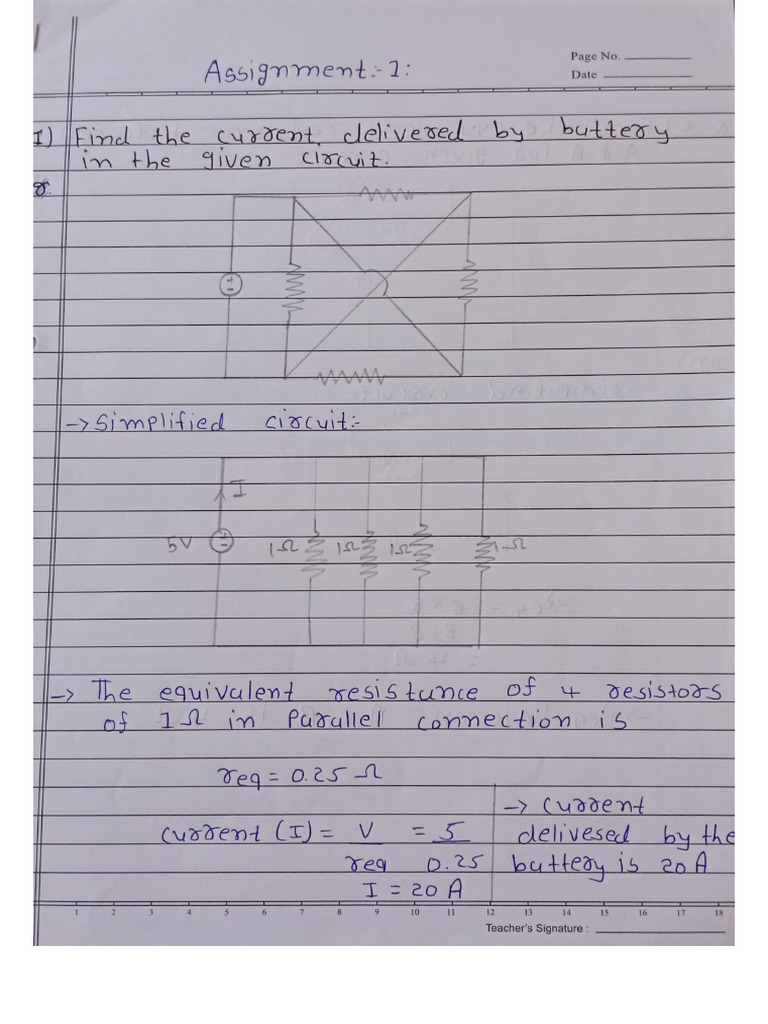 Assignment:- 1:
Page No.
Date
1) Find the current, delivered by buttery
in the given circuit.
→ Simplified circuit:-
I
5V 1Ω 1Ω 1Ω 1Ω
→ The equivalent resistance of 4 resistors
of 1Ω in Parallel connection is
req = 0.25 Ω
current (I) = V/req = 5/0.25
I = 20 A
→ current
delivesed by the
buttery is 20 A
1 2 3 4 5 6 7 8 9 10 11 12 13 14 15 16 17 18
Teacher's Signature :